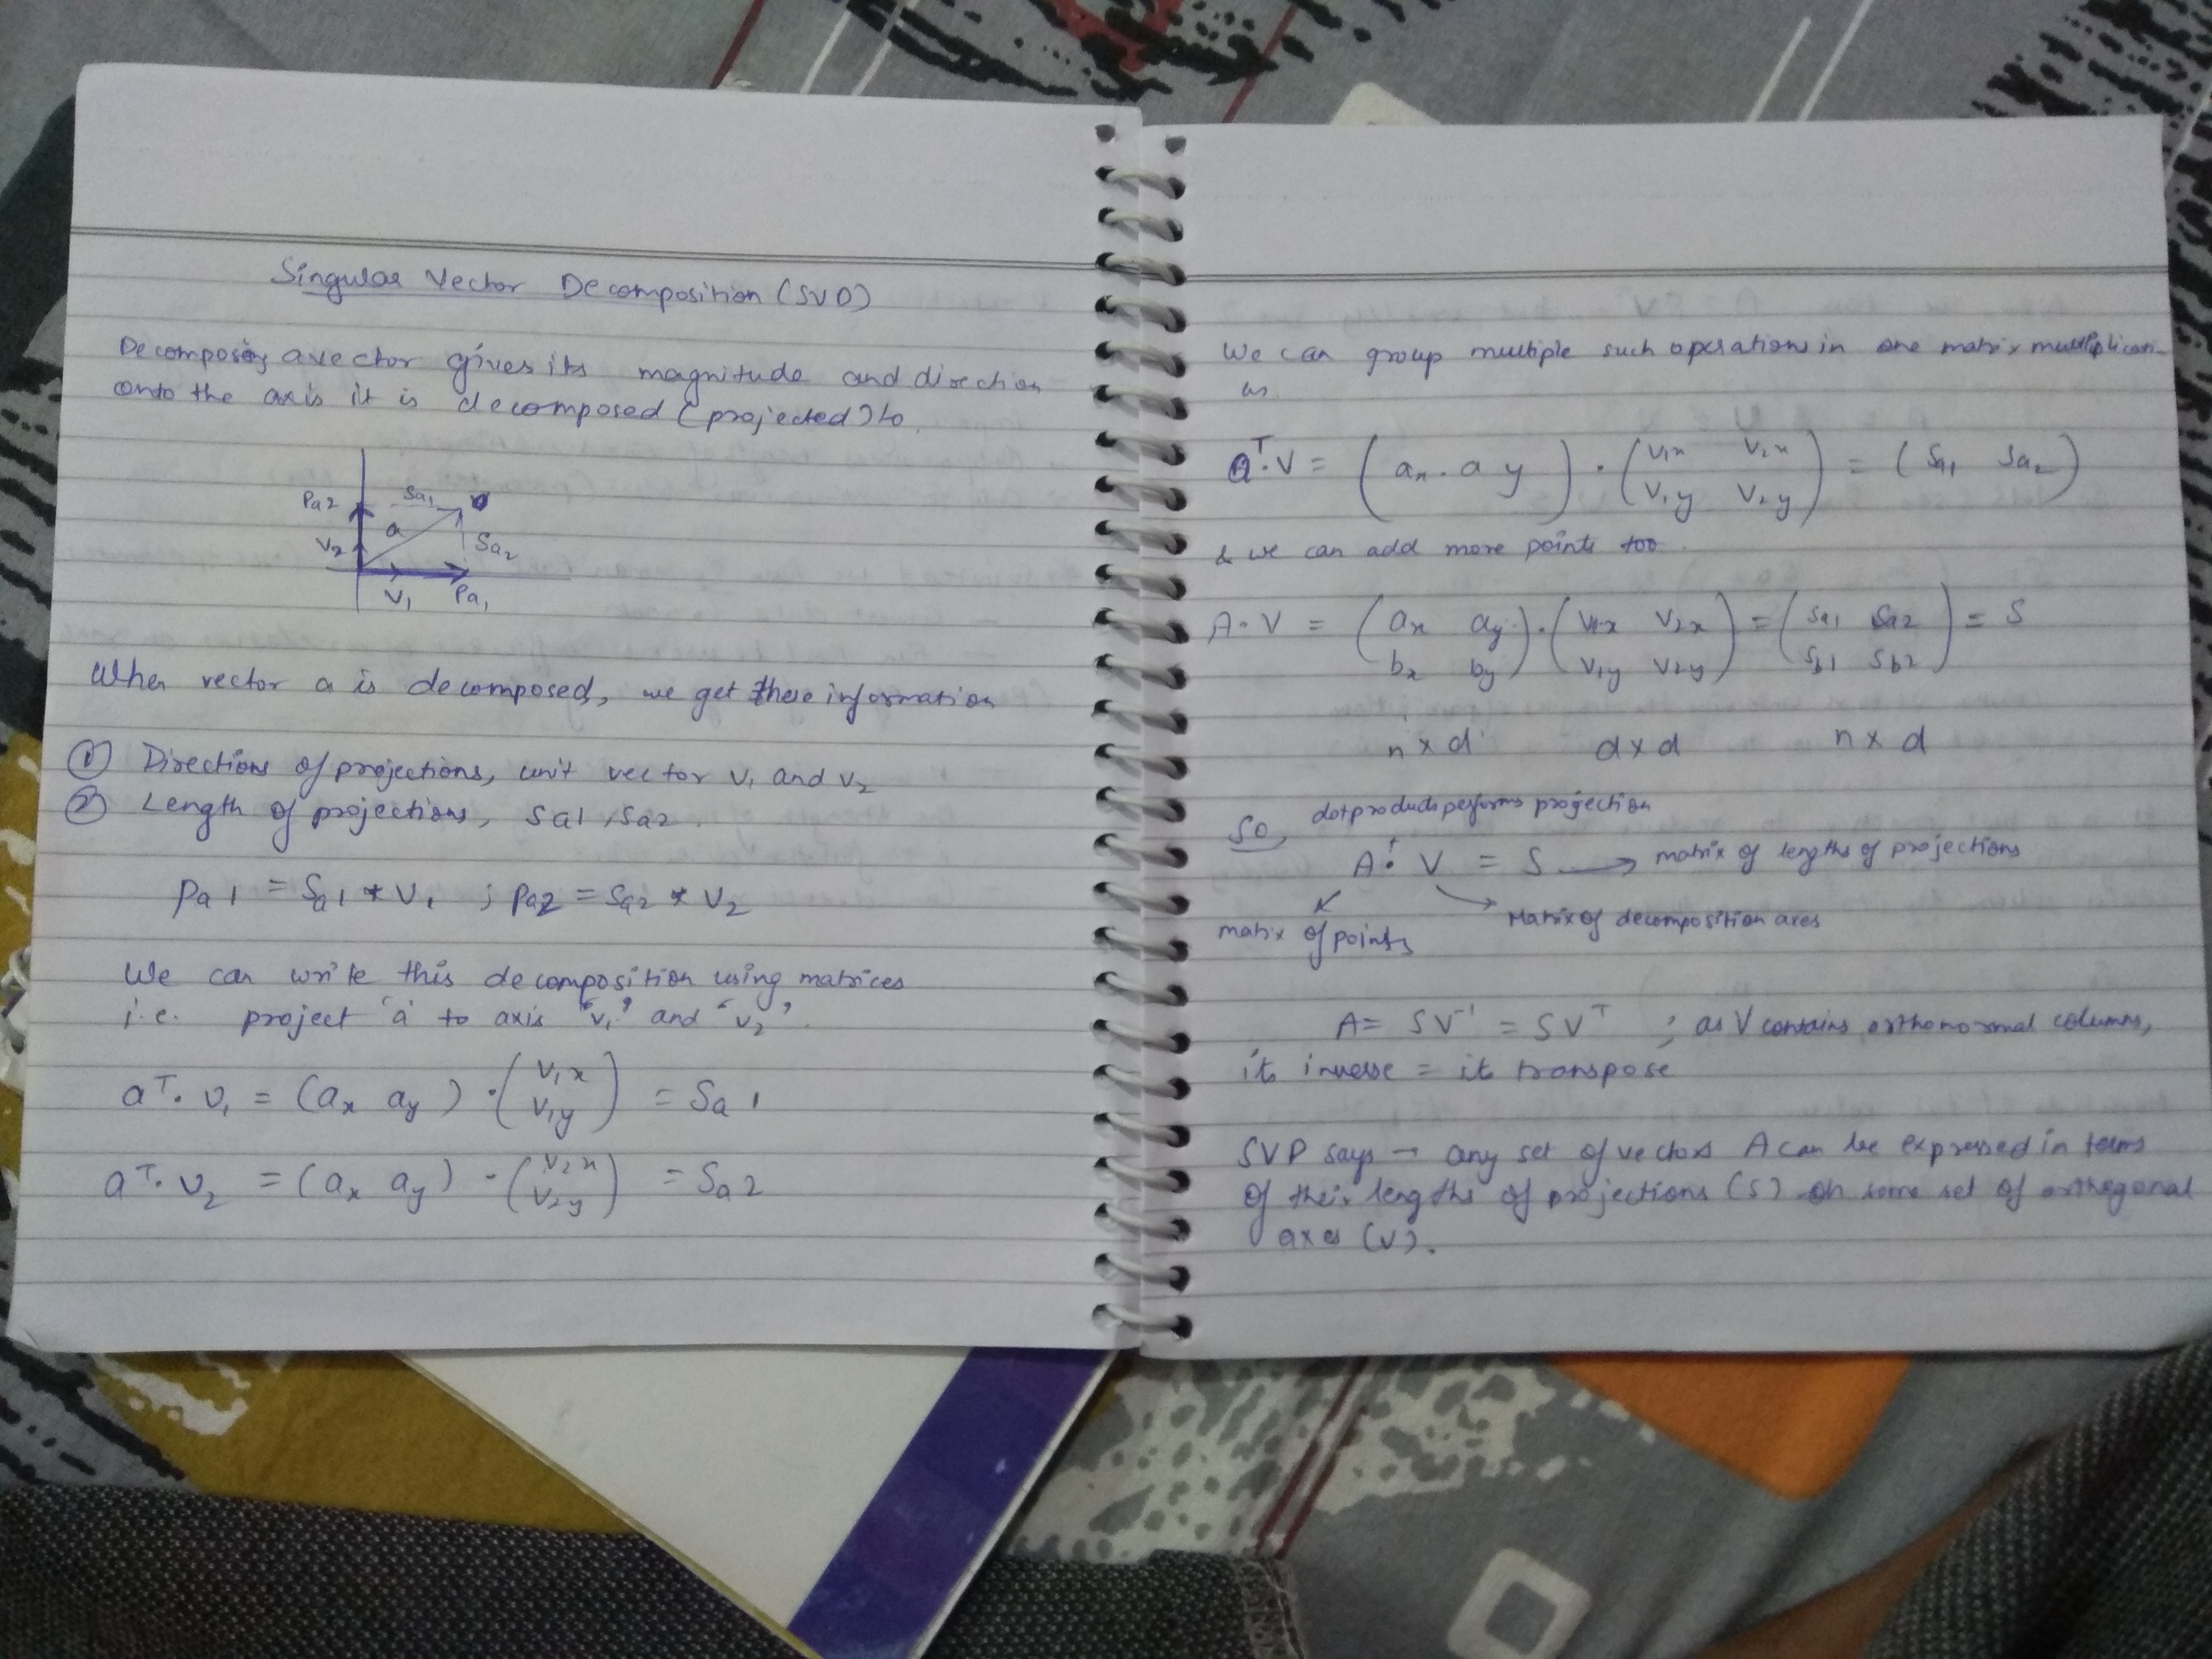 Singular Vector Decomposition (SVD)
Decomposing a vector gives its magnitude and direction
onto the axis it is decomposed (projected) to.
Pa2
Sa1
a
V2
Sa2
V1
Pa1
When vector a is decomposed, we get these information
① Directions of projections, unit vector v1 and v2
② Length of projections, Sa1, Sa2.
Pa1 = Sa1 * V1 ; Pa2 = Sa2 * V2
We can write this decomposition using matrices
i.e. project 'a' to axis "v1" and "v2".
a^T. v1 = (ax ay) . (v1x v1y) = Sa1
a^T. v2 = (ax ay) . (v2x v2y) = Sa2
We can group multiple such operations in one matrix multiplicati-
as
a^T.V = (ax . ay) . (v1x v2x v1y v2y) = (Sa1 Sa2)
& we can add more points too.
A.V = (ax ay bx by) . (v1x v2x v1y v2y) = (Sa1 Sa2 Sb1 Sb2) = S
n x d d x d n x d
So, dot products performs projection
A . V = S → matrix of lengths of projections
matrix of points
Matrix of decomposition axes
A = SV^-1 = SV^T ; as V contains orthonormal columns,
it's inverse = it transpose
SVP says → any set of vectors A can be expressed in terms
of their lengths of projections (S) on some set of orthogonal
axes (V).